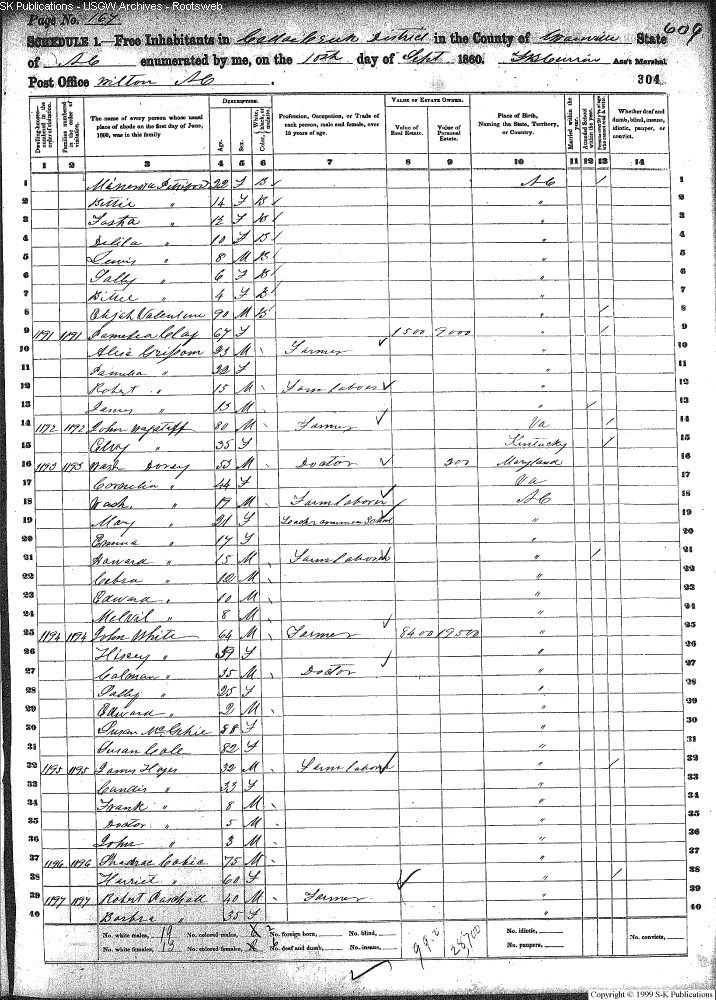 SK Publications - USGW Archives - Rootsweb
Page No. 167
609
SCHEDULE 1.—Free Inhabitants in District in the County of Granville State
of NC enumerated by me, on the 10th day of Sept 1860. Ass't Marshal
Post Office Wilton NC. 304
Dwelling-houses—numbered in the order of visitation.
Families numbered in the order of visitation.
The name of every person whose usual place of abode on the first day of June, 1860, was in this family
DESCRIPTION.
Age.
Sex.
Color, White, black, or mulatto.
Profession, Occupation, or Trade of each person, male and female, over 15 years of age.
VALUE OF ESTATE OWNED.
Value of Real Estate.
Value of Personal Estate.
Place of Birth, Naming the State, Territory, or Country.
Married within the year.
Attended School within the year.
Whether deaf and dumb, blind, insane, idiotic, pauper, or convict.
1 2 3 4 5 6 7 8 9 10 11 12 13 14
1 22 F B NC / 1
2 Bittie " 14 F B " 2
3 " 12 F B " 3
4 Delila " 10 F B " 4
5 Lewis " 8 M B " 5
6 Sally " 6 F B " 6
7 Bittie " 4 F B " 7
8 Elijah Valentine 90 M B " / 8
9 1191 1191 Pamelia Clay 67 F 1500 9000 " / 9
10 Grissom 23 M Farmer " 10
11 Pamelia " 32 F " 11
12 Robert " 15 M Farm laborer " 12
13 James " 13 M " / 13
14 1192 1192 John Wagstaff 80 M Farmer Va / 14
15 " 35 F Kentucky / 15
16 1193 1193 Wash Dorsey 53 M Doctor 200 Maryland 16
17 Cornelia " 44 F Va 17
18 Wash. " 19 M Farm laborer NC 18
19 Mary " 21 F Teacher common School " 19
20 Emma " 17 F " 20
21 Howard " 15 M Farm laborer " / 21
22 " 12 M " 22
23 Edward " 10 M " 23
24 Melvil " 8 M " 24
25 1194 1194 John White 64 M Farmer 8400 19500 " 25
26 " 59 F " 26
27 Calman " 35 M Doctor " 27
28 Patty " 25 F " 28
29 Edward " 2 M " 29
30 Susan McGehie 88 F " 30
31 Susan Cole 82 F " 31
32 1195 1195 James Hayes 32 M Farm laborer " / 32
33 Candis " 33 F " 33
34 Frank " 8 M " 34
35 Doctor " 5 M " 35
36 John " 3 M " 36
37 1196 1196 75 M " 37
38 Harriet " 60 F " / 38
39 1197 1197 Robert Paschall 40 M Farmer " 39
40 Barbra " 35 F " 40
No. white males, 19 No. colored males, 2 No. foreign born, No. blind, No. idiotic, No. convicts,
No. white females, 13 No. colored females, 6 No. deaf and dumb, No. insane, No. paupers,
28,700
Copyright © 1999 S-K Publications